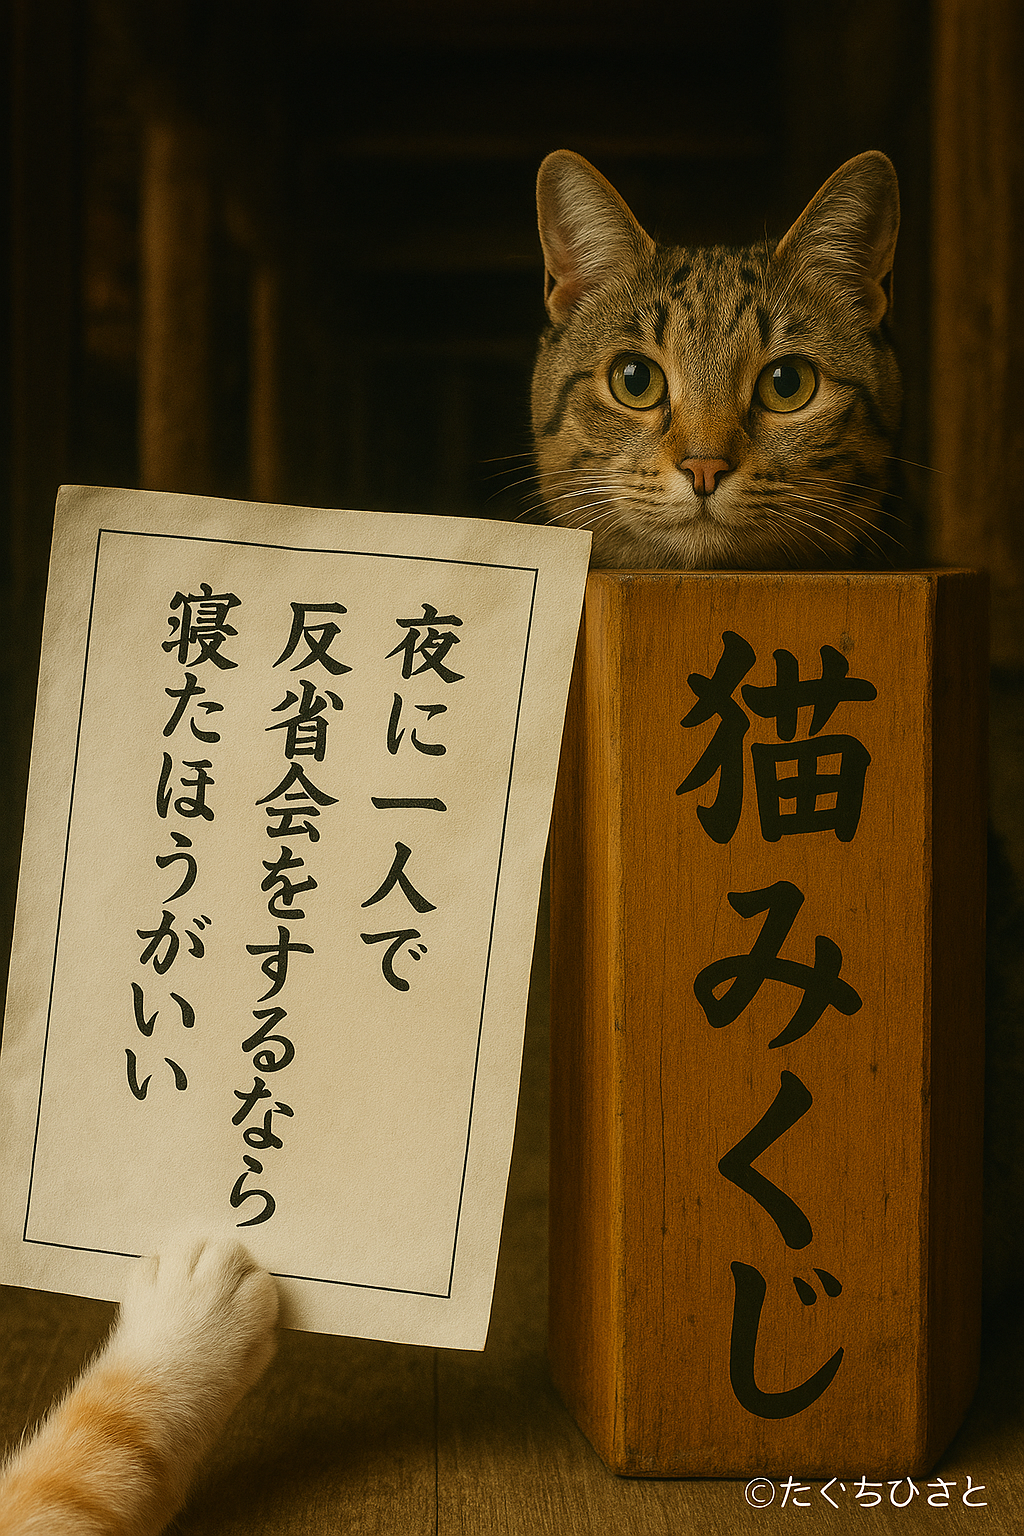 夜に一人で
反省会をするなら
寝たほうがいい
猫みくじ
©たぐちひさと